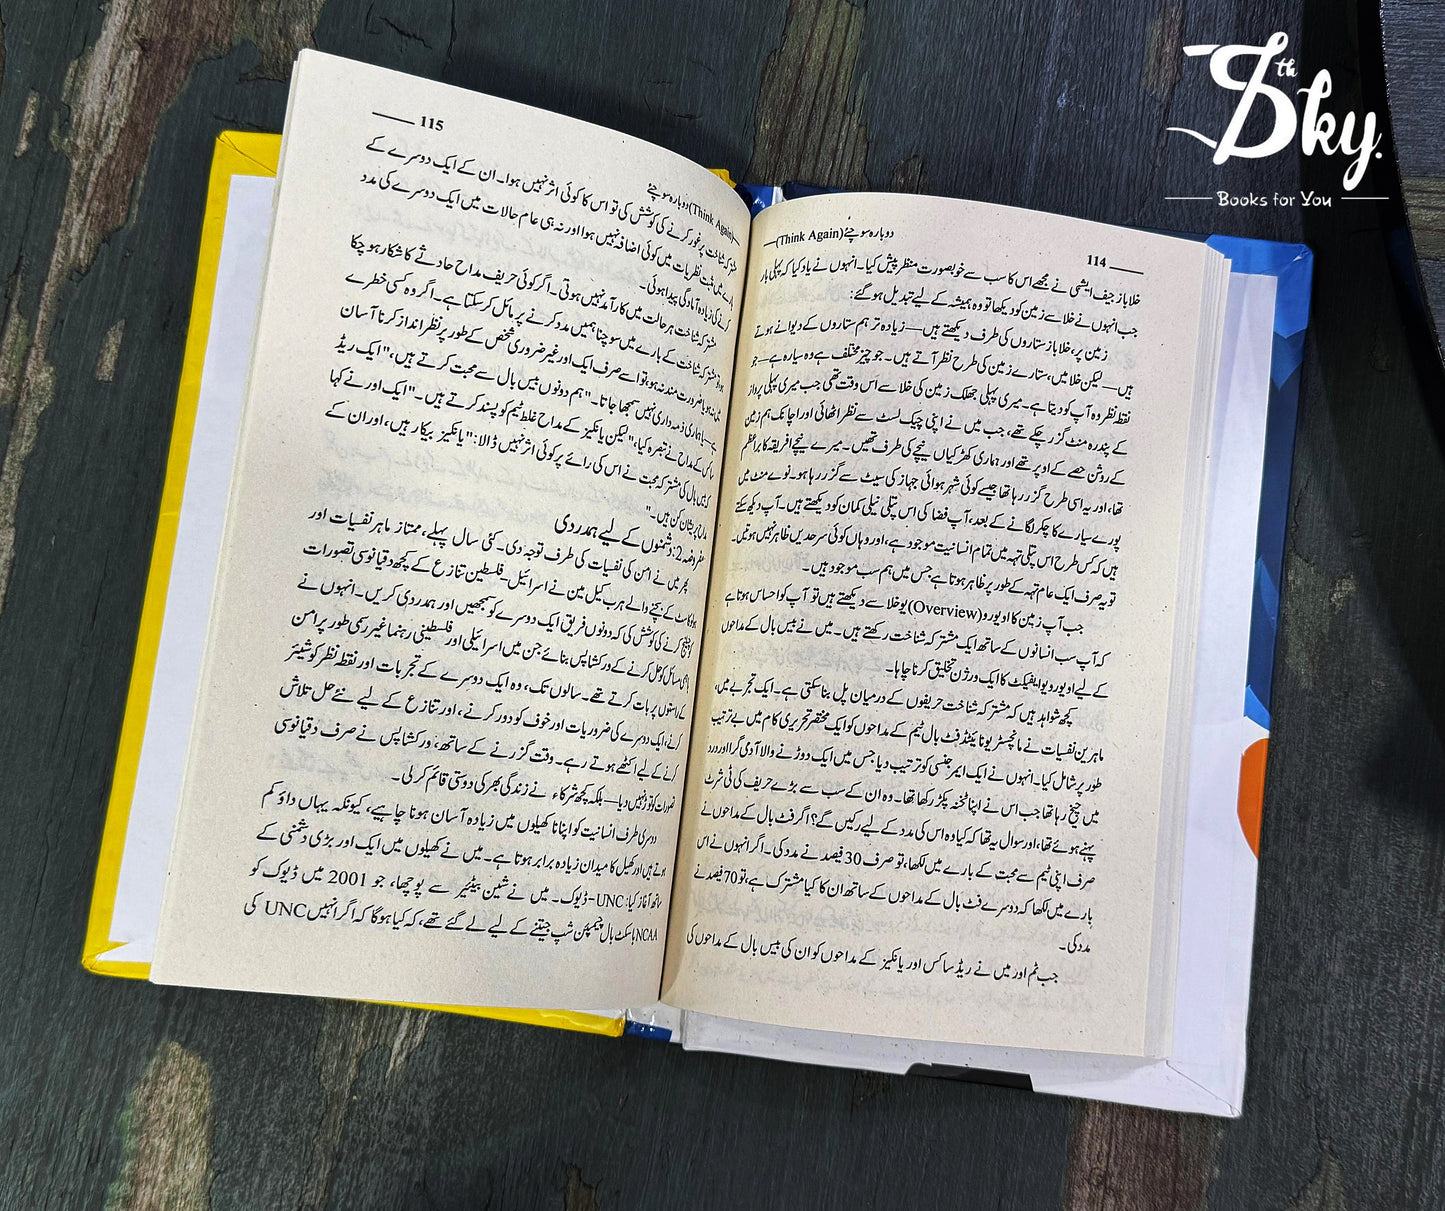 7th Sky.
Books for You
114
دوبارہ سوچئے (Think Again)
خلا باز جیف ایشبی نے مجھے اس کا سب سے خوبصورت منظر پیش کیا۔ انہوں نے یاد کیا کہ پہلی بار
جب انہوں نے خلا سے زمین کو دیکھا تو وہ ہمیشہ کے لیے تبدیل ہو گئے:
زمین پر، خلا باز ستاروں کی طرف دیکھتے ہیں—زیادہ تر ہم ستاروں کے دیوانے ہوتے
ہیں—لیکن خلا میں، ستارے زمین کی طرح نظر آتے ہیں۔ جو چیز مختلف ہے وہ سیارہ ہے—جو
نقطہ نظر وہ آپ کو دیتا ہے۔ میری پہلی جھلک زمین کی خلا سے اس وقت تھی جب میری پہلی پرواز
کے پندرہ منٹ گزر چکے تھے، جب میں نے اپنی چیک لسٹ سے نظر اٹھائی اور اچانک ہم زمین
کے روشن حصے کے اوپر تھے اور ہماری کھڑکیاں نیچے کی طرف تھیں۔ میرے نیچے افریقہ کا براعظم
تھا، اور یہ اسی طرح گزر رہا تھا جیسے کوئی شہر ہوائی جہاز کی سیٹ سے گزر رہا ہو۔ نوے منٹ میں
پورے سیارے کا چکر لگانے کے بعد، آپ فضا کی اس پتلی نیلی کمان کو دیکھتے ہیں۔ آپ دیکھ سکتے
ہیں کہ کس طرح اس پتلی تہہ میں تمام انسانیت موجود ہے، اور وہاں کوئی سرحدیں ظاہر نہیں ہوتیں۔
تو یہ صرف ایک عام تہہ کے طور پر ظاہر ہوتا ہے جس میں ہم سب موجود ہیں۔
جب آپ زمین کا اوورویو (Overview) خلا سے دیکھتے ہیں تو آپ کو احساس ہوتا ہے
کہ آپ سب انسانوں کے ساتھ ایک مشترکہ شناخت رکھتے ہیں۔ میں نے بیس بال کے مداحوں
کے لیے اوورویو ایفیکٹ کا ایک ورژن تخلیق کرنا چاہا۔
کچھ شواہد ہیں کہ مشترکہ شناخت حریفوں کے درمیان پل بنا سکتی ہے۔ ایک تجربے میں،
ماہرین نفسیات نے مانچسٹر یونائیٹڈ فٹ بال ٹیم کے مداحوں کو ایک مختصر تحریری کام میں بے ترتیب
طور پر شامل کیا۔ انہوں نے ایک ایمرجنسی کو ترتیب دیا جس میں ایک دوڑنے والا آدمی گرا اور درد
میں چیخ رہا تھا جب اس نے اپنا ٹخنہ پکڑ رکھا تھا۔ وہ ان کے سب سے بڑے حریف کی ٹی شرٹ
پہنے ہوئے تھا، اور سوال یہ تھا کہ کیا وہ اس کی مدد کے لیے رکیں گے؟ اگر فٹ بال کے مداحوں نے
صرف اپنی ٹیم سے محبت کے بارے میں لکھا، تو صرف 30 فیصد نے مدد کی۔ اگر انہوں نے اس
بارے میں لکھا کہ دوسرے فٹ بال کے مداحوں کے ساتھ ان کا کیا مشترک ہے، تو 70 فیصد نے
مدد کی۔
جب ٹم اور میں نے ریڈ ساکس اور یانکیز کے مداحوں کو ان کی بیس بال کے مداحوں کی
115
دوبارہ سوچئے (Think Again)
مشترکہ شناخت پر غور کرنے کی کوشش کی تو اس کا کوئی اثر نہیں ہوا۔ ان کے ایک دوسرے کے
بارے میں مثبت نظریات میں کوئی اضافہ نہیں ہوا اور نہ ہی عام حالات میں ایک دوسرے کی مدد
کرنے کی زیادہ آمادگی پیدا ہوئی۔
مشترکہ شناخت ہر حالت میں کارآمد نہیں ہوتی۔ اگر کوئی حریف مداح حادثے کا شکار ہو چکا
ہو، مشترکہ شناخت کے بارے میں سوچنا ہمیں مدد کرنے پر مائل کر سکتا ہے۔ اگر وہ کسی خطرے
میں نہ ہو یا ضرورت مند نہ ہو، تو اسے صرف ایک اور غیر ضروری شخص کے طور پر نظر انداز کرنا آسان
ہے—یا ہماری ذمہ داری نہیں سمجھا جاتا۔ "ہم دونوں بیس بال سے محبت کرتے ہیں،" ایک ریڈ
ساکس کے مداح نے تبصرہ کیا، "لیکن یانکیز کے مداح غلط ٹیم کو پسند کرتے ہیں۔" ایک اور نے کہا
کہ بیس بال کی مشترکہ محبت نے اس کی رائے پر کوئی اثر نہیں ڈالا: "یانکیز بیکار ہیں، اور ان کے
مداح پریشان کن ہیں۔"
مفروضہ 2: دشمنوں کے لیے ہمدردی
پھر میں نے امن کی نفسیات کی طرف توجہ دی۔ کئی سال پہلے، ممتاز ماہر نفسیات اور
ہولوکاسٹ کے بچنے والے ہرب کیل مین نے اسرائیل-فلسطین تنازع کے کچھ دقیانوسی تصورات
کو چیلنج کرنے کی کوشش کی کہ دونوں فریق ایک دوسرے کو سمجھیں اور ہمدردی کریں۔ انہوں نے
مسائل کو حل کرنے کے ورکشاپس بنائے جن میں اسرائیلی اور فلسطینی رہنما غیر رسمی طور پر امن
کے راستوں پر بات کرتے تھے۔ سالوں تک، وہ ایک دوسرے کے تجربات اور نقطہ نظر کو شیئر
کرنے، ایک دوسرے کی ضروریات اور خوف کو دور کرنے، اور تنازع کے لیے نئے حل تلاش
کرنے کے لیے اکٹھے ہوتے رہے۔ وقت گزرنے کے ساتھ، ورکشاپس نے صرف دقیانوسی
تصورات کو توڑ نہیں دیا—بلکہ کچھ شرکاء نے زندگی بھر کی دوستی قائم کر لی۔
دوسری طرف انسانیت کو اپنانا کھیلوں میں زیادہ آسان ہونا چاہیے، کیونکہ یہاں داؤ کم
ہوتے ہیں اور کھیل کا میدان زیادہ برابر ہوتا ہے۔ میں نے کھیلوں میں ایک اور بڑی دشمنی کے
ساتھ آغاز کیا: UNC-ڈیوک۔ میں نے شین بیٹئیر سے پوچھا، جو 2001 میں ڈیوک کو
NCAA باسکٹ بال چیمپئن شپ جیتنے کے لیے لے گئے تھے، کہ کیا ہوگا کہ اگر انہیں UNC کی